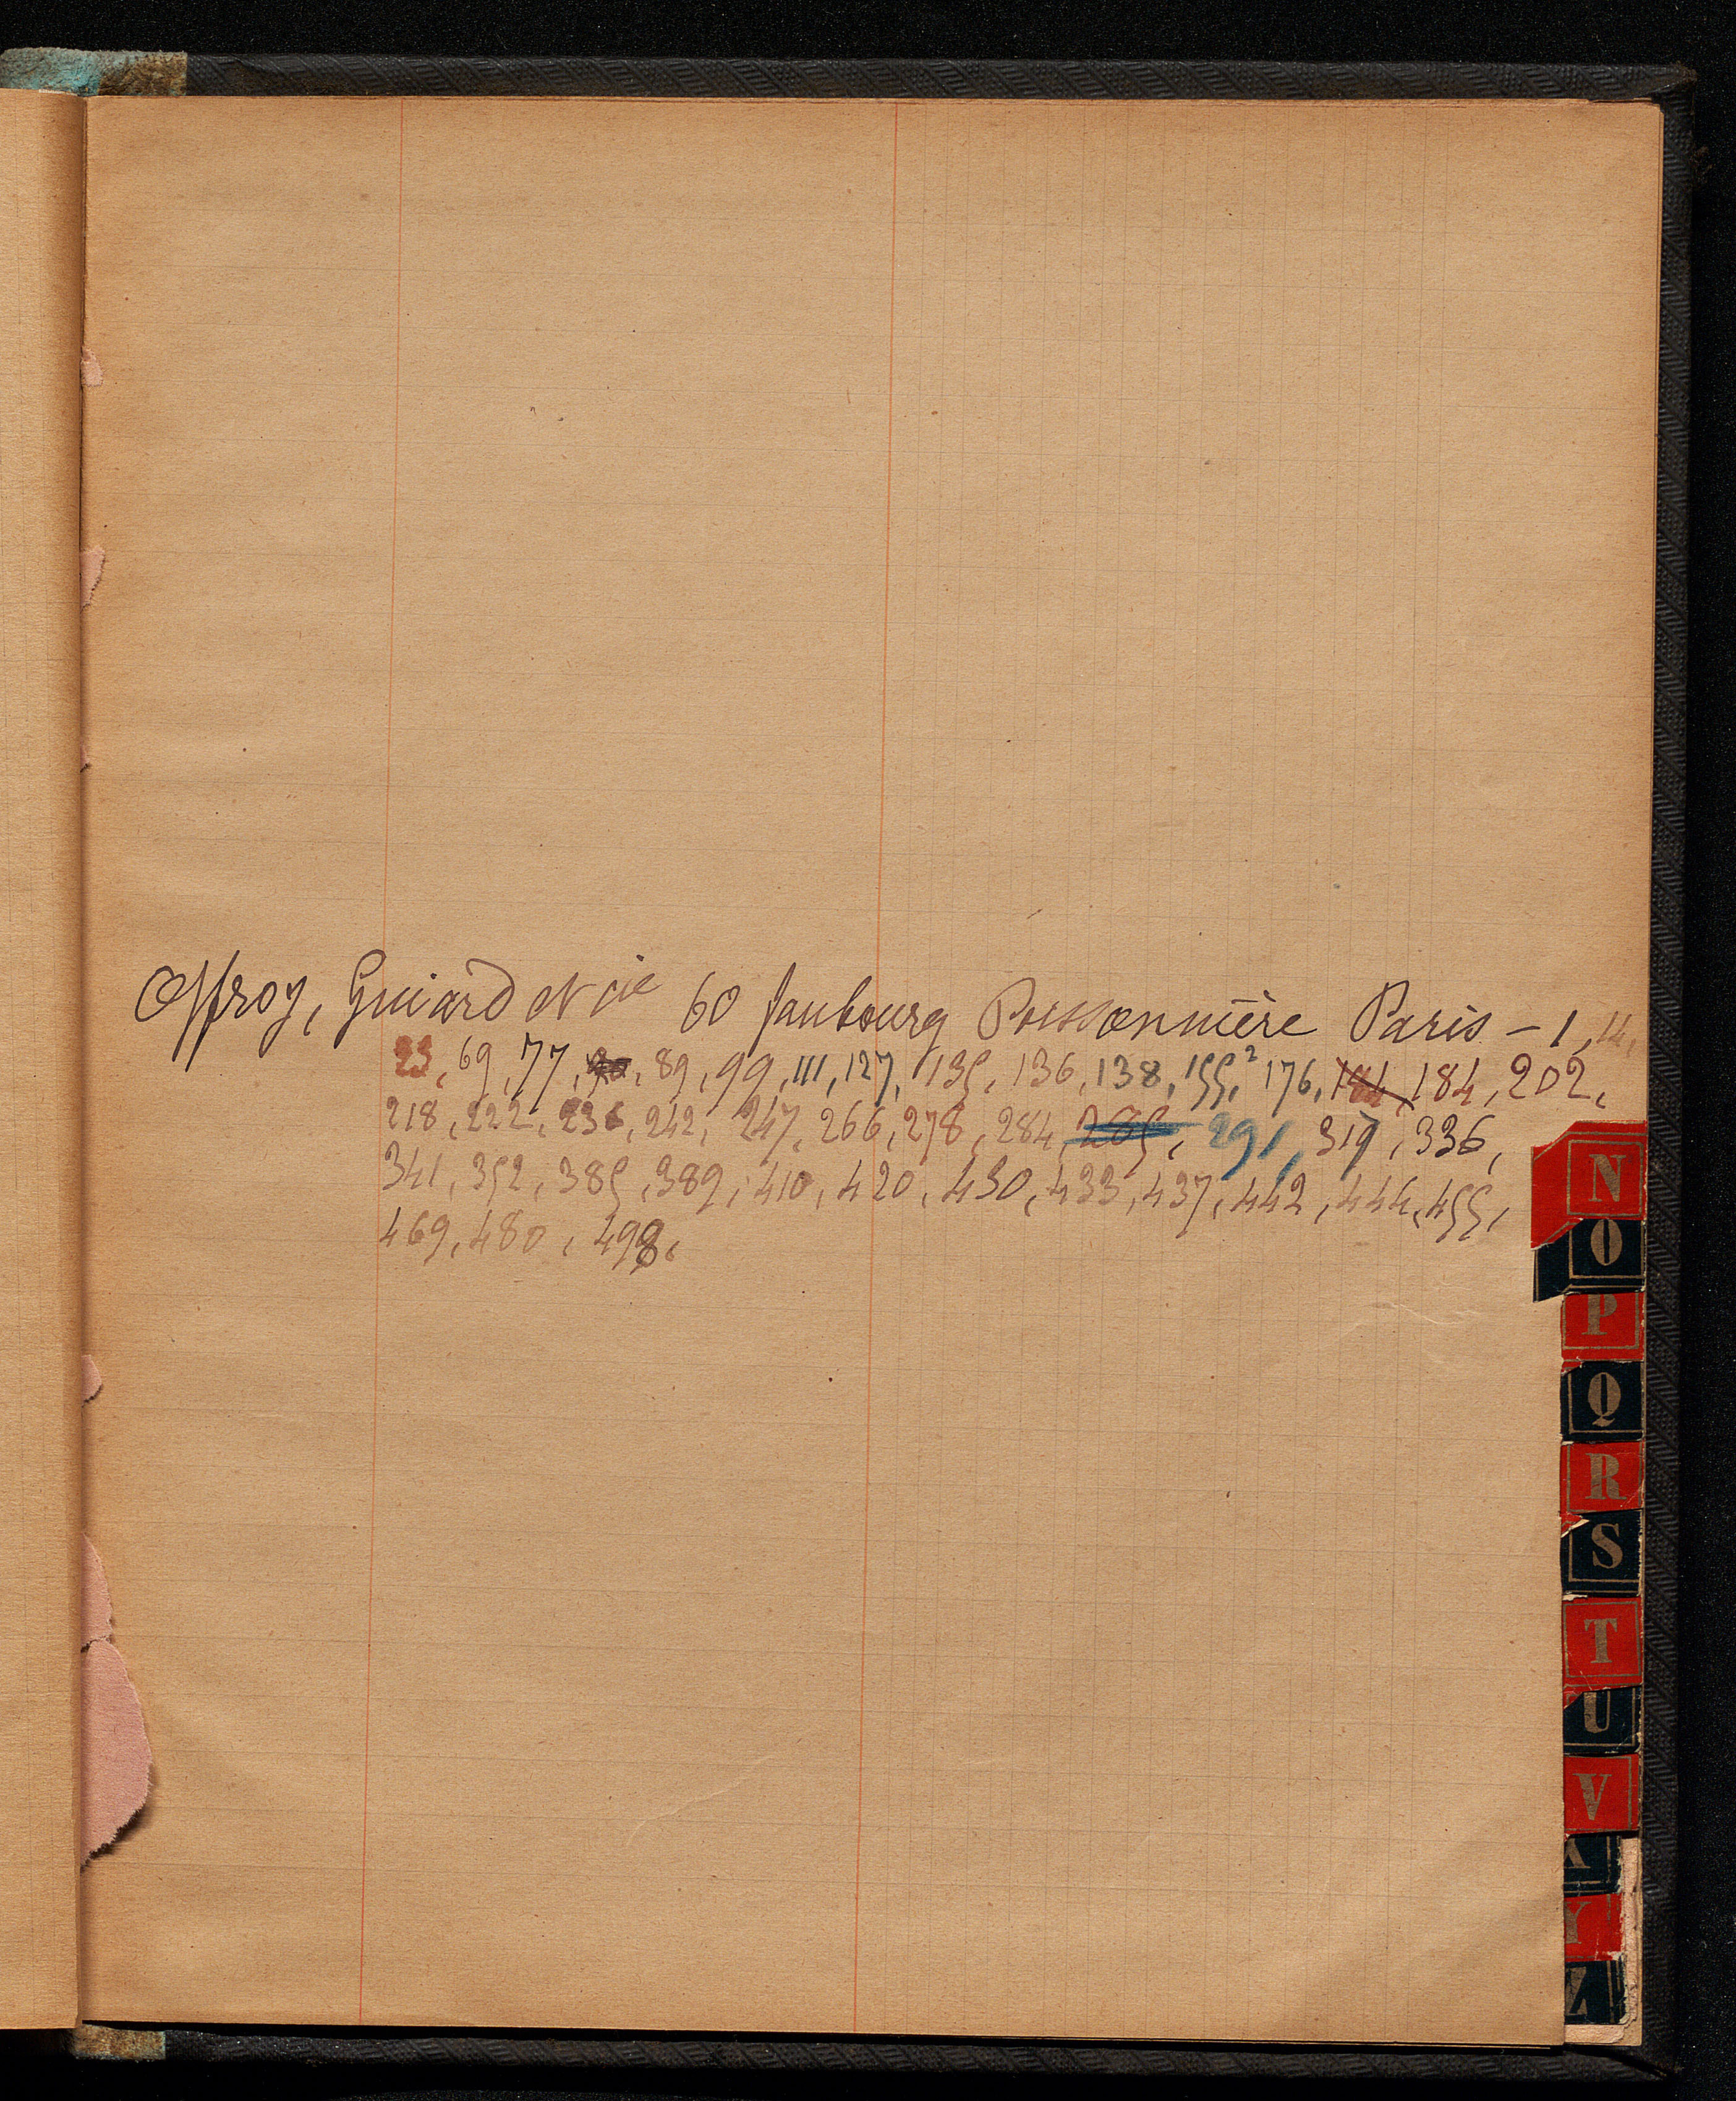 Offroy, Guiard et cie 60 faubourg Poissonnière Paris – 1, 14,
23, 69, 77, 89, 99, 111, 127, 135, 136, 138, 155,² 176, 184, 184, 202,
218, 222, 236, 242, 247, 266, 278, 284, 285, 291, 317, 336,
341, 352, 385, 389, 410, 420, 430, 433, 437, 442, 444, 455,
469, 480, 498,
N
O
P
Q
R
S
T
U
V
X
Y
Z